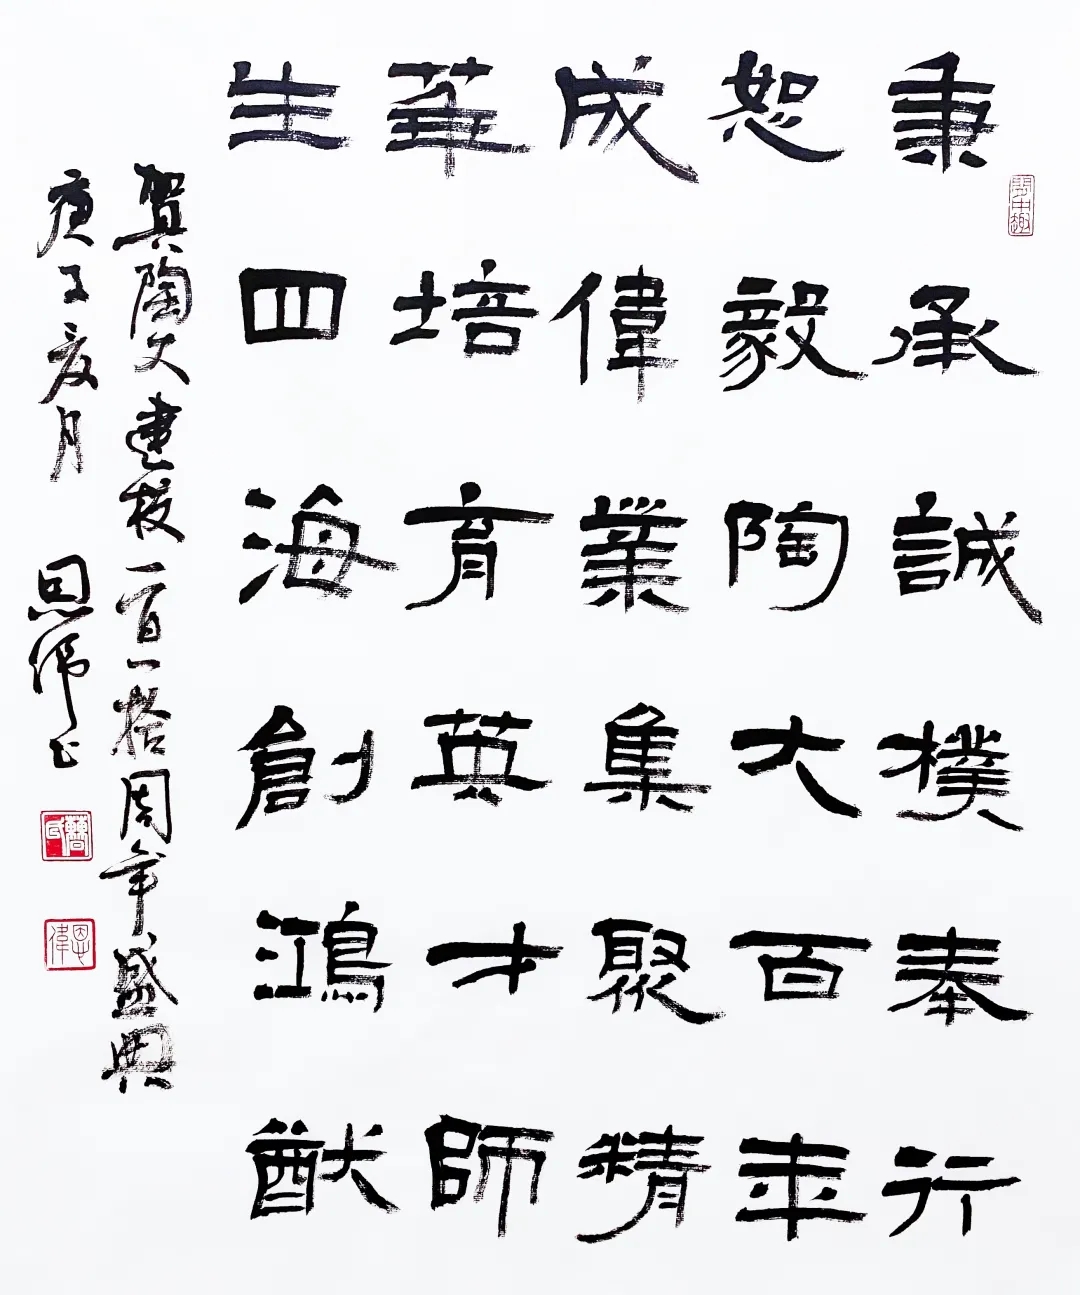 秉承誠樸奉行
恕毅陶大百年
成偉業集聚精
華培育英才師
生四海創鴻猷
賀陶大建校一百一拾周年盛典
庚子夏月 恩偉书
恩偉